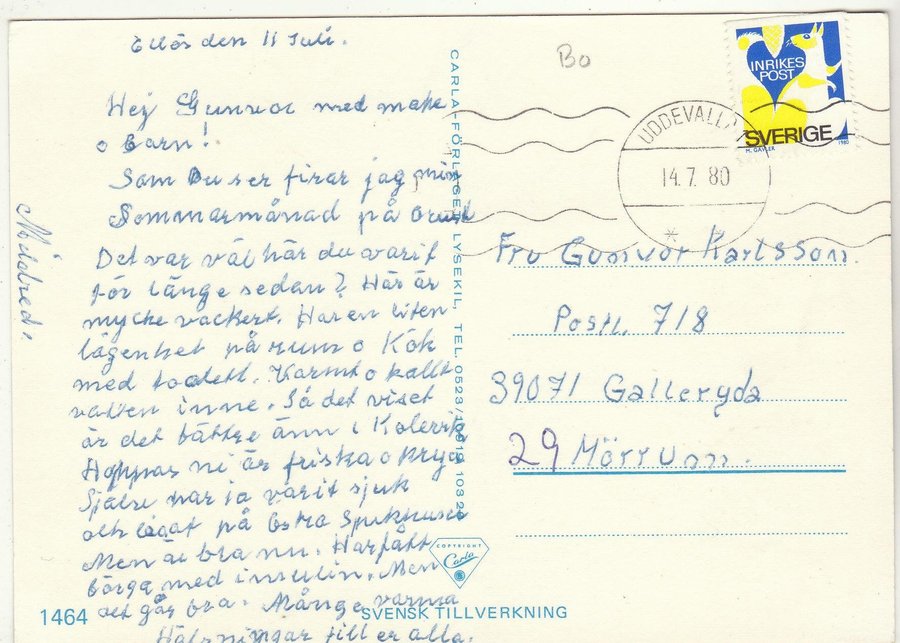 Ellös den 11 Juli.
Hej Gunvor med make
o Barn!
Som Du ser firar jag min
Sommarmånad på Orust
Det var väl här du varit
för länge sedan? Här är
mycke vackert. Har en liten
lägenhet på rum o Kök
med toalett. Varmt o kallt
vatten inne. Så det viset
är det bättre änn i
Hoppas ni är friska o Krya
Själv har ja varit sjuk
och legat på Östra Sjukhuset
Men är bra nu. Har fått
börga med insulin. Men
det går bra. Många varma
Hälsningar till er alla.
Mildred.
CARLA-FÖRLAGET LYSEKIL, TEL. 0523/10619, 103 2
COPYRIGHT
Carla
1464
SVENSK TILLVERKNING
Bo
INRIKES
POST
SVERIGE
M. GAVLER
1980
UDDEVALLA
14.7 80
Fru Gunvor Karlsson.
Postl. 718
39071 Galleryda
29 Mörrum.